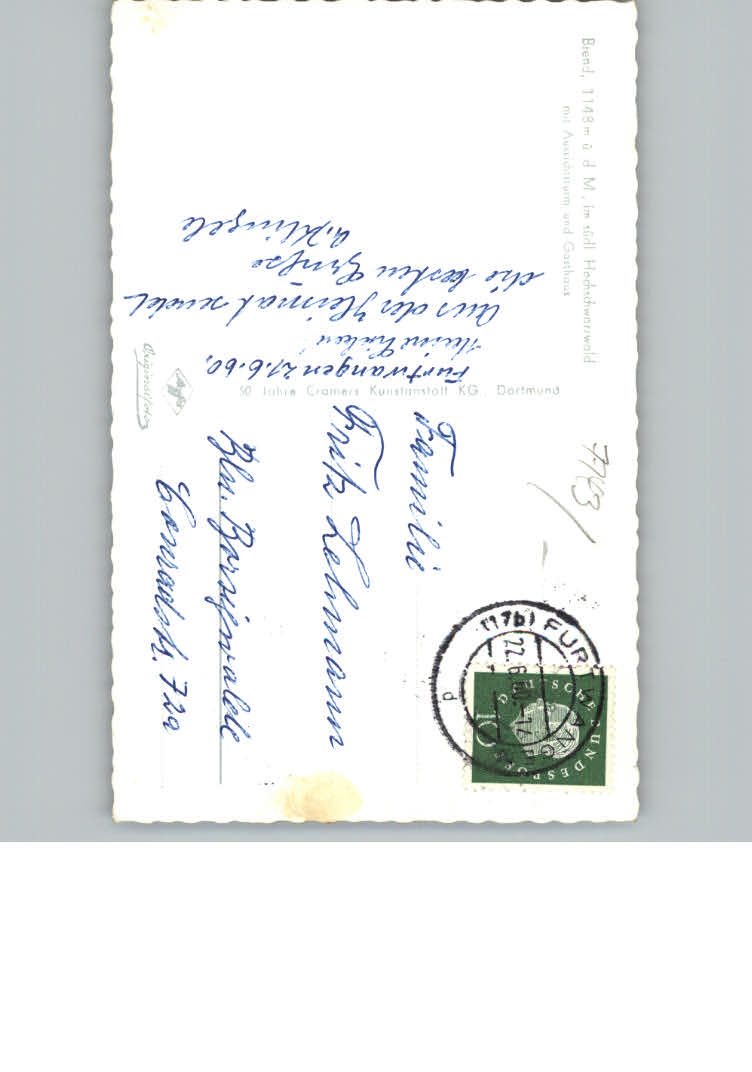 Brend, 1148 m ü. d. M., im südl. Hochschwarzwald
mit Aussichtsturm und Gasthaus
Furtwangen 21.6.60.
Meine Lieben!
Aus der Heimat sendet
die besten Grüße
50 Jahre Cramers Kunstanstalt KG., Dortmund
Agfa
Originalfoto
Familie
Fritz Lehmann
Bln. Borsigwalde
Conradstr. 72a
(17b) FURTWANGEN
22.6.60.-17
p
DEUTSCHE BUNDESPOST
10